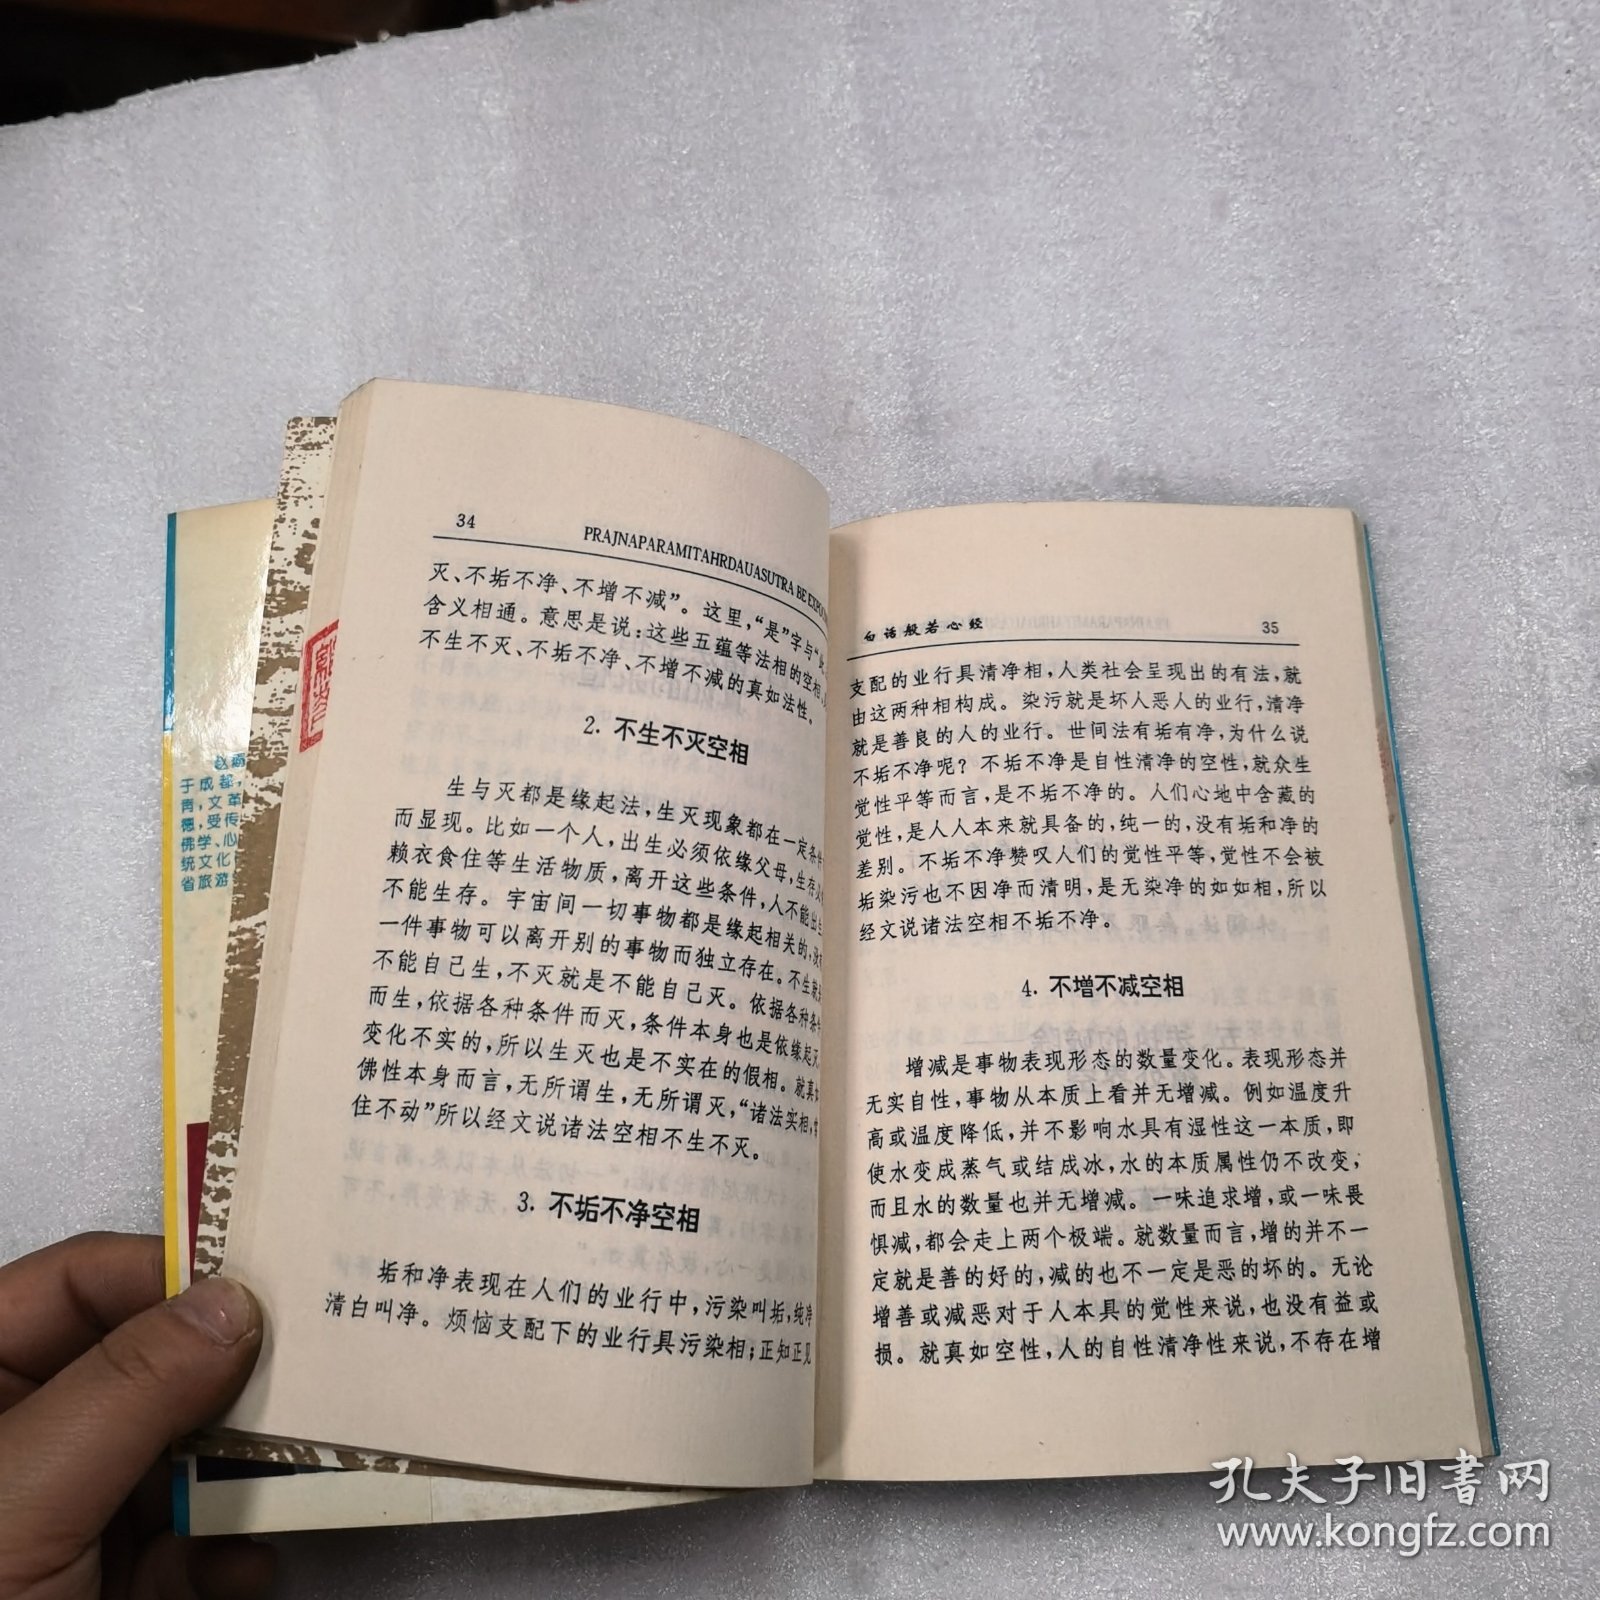 34
PRAJNAPARAMITAHRDAUASUTRA BE EXPO
灭、不垢不净、不增不减”。这里，“是”字与“
含义相通。意思是说：这些五蕴等法相的空相，
不生不灭、不垢不净、不增不减的真如法性。
2. 不生不灭空相
生与灭都是缘起法，生灭现象都在一定条件
而显现。比如一个人，出生必须依缘父母，生存
赖衣食住等生活物质，离开这些条件，人不能出生
不能生存。宇宙间一切事物都是缘起相关的，没
一件事物可以离开别的事物而独立存在。不生就
不能自己生，不灭就是不能自己灭。依据各种条件
而生，依据各种条件而灭，条件本身也是依缘起灭
变化不实的，所以生灭也是不实在的假相。就真如
佛性本身而言，无所谓生，无所谓灭，“诸法实相，常
住不动”所以经文说诸法空相不生不灭。
3. 不垢不净空相
垢和净表现在人们的业行中，污染叫垢，纯净
清白叫净。烦恼支配下的业行具污染相；正知正见
白话般若心经
35
支配的业行具清净相，人类社会呈现出的有法，就
由这两种相构成。染污就是坏人恶人的业行，清净
就是善良的人的业行。世间法有垢有净，为什么说
不垢不净呢？不垢不净是自性清净的空性，就众生
觉性平等而言，是不垢不净的。人们心地中含藏的
觉性，是人人本来就具备的，纯一的，没有垢和净的
差别。不垢不净赞叹人们的觉性平等，觉性不会被
垢染污也不因净而清明，是无染净的如如相，所以
经文说诸法空相不垢不净。
4. 不增不减空相
增减是事物表现形态的数量变化。表现形态并
无实自性，事物从本质上看并无增减。例如温度升
高或温度降低，并不影响水具有湿性这一本质，即
使水变成蒸气或结成冰，水的本质属性仍不改变，
而且水的数量也并无增减。一味追求增，或一味畏
惧减，都会走上两个极端。就数量而言，增的并不一
定就是善的好的，减的也不一定是恶的坏的。无论
增善或减恶对于人本具的觉性来说，也没有益或
损。就真如空性，人的自性清净性来说，不存在增
于成都，
青，文革
德，受传
佛学、心
统文化
省旅游
孔夫子旧书网
www.kongfz.com